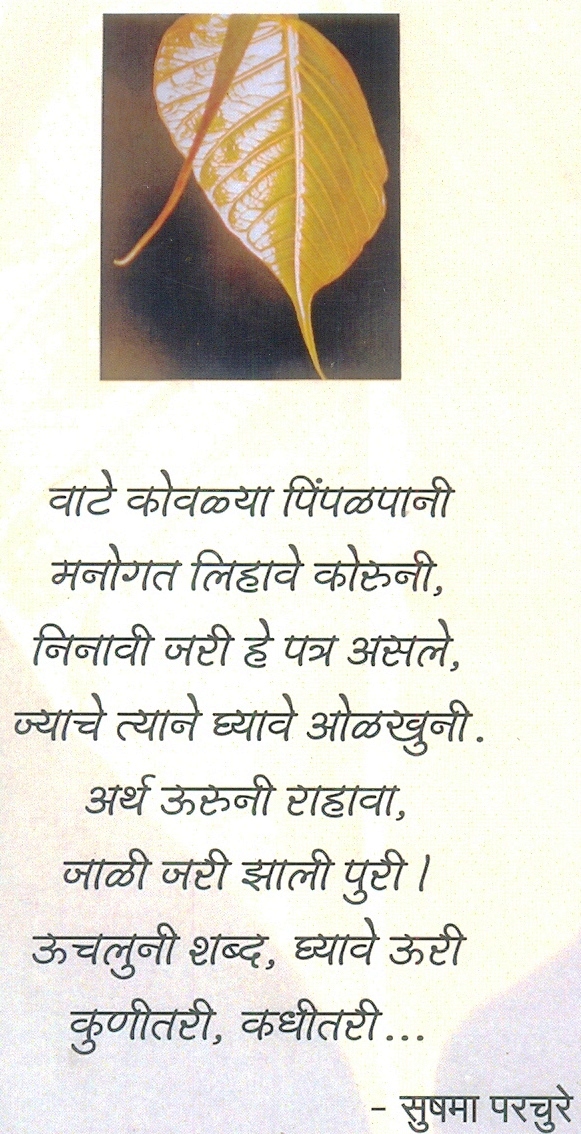 वाटे कोवळ्या पिंपळपानी
मनोगत लिहावे कोरुनी,
निनावी जरी हे पत्र असले,
ज्याचे त्याने घ्यावे ओळखुनी.
अर्थ ऊरुनी राहावा,
जाळी जरी झाली पुरी।
ऊचलुनी शब्द, घ्यावे ऊरी
कुणीतरी, कधीतरी...
- सुषमा परचुरे